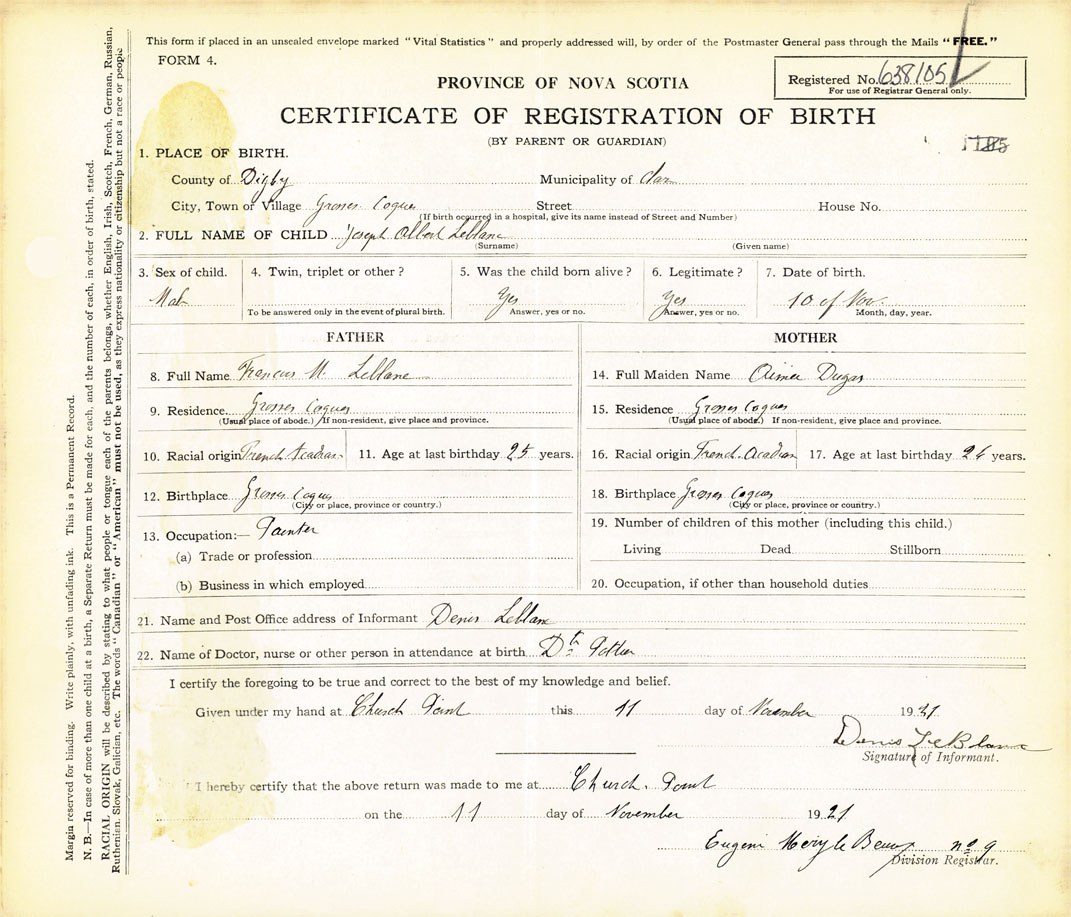 This form if placed in an unsealed envelope marked "Vital Statistics" and properly addressed will, by order of the Postmaster General pass through the Mails "FREE."
FORM 4.
PROVINCE OF NOVA SCOTIA
Registered No. 638105
For use of Registrar General only.
CERTIFICATE OF REGISTRATION OF BIRTH
(BY PARENT OR GUARDIAN)
1. PLACE OF BIRTH.
County of Digby Municipality of Clare
City, Town or Village Grosses Coques Street House No.
(If birth occurred in a hospital, give its name instead of Street and Number)
2. FULL NAME OF CHILD Joseph Albert Leblanc
(Surname) (Given name)
3. Sex of child. 4. Twin, triplet or other? 5. Was the child born alive? 6. Legitimate? 7. Date of birth.
Male Yes Yes 10 of Nov.
To be answered only in the event of plural birth. Answer, yes or no. Answer, yes or no. Month, day, year.
FATHER
8. Full Name M. Leblanc
9. Residence Grosses Coques
(Usual place of abode.) If non-resident, give place and province.
10. Racial origin French Acadian 11. Age at last birthday 25 years.
12. Birthplace Grosses Coques
(City or place, province or country.)
13. Occupation:— Painter
(a) Trade or profession
(b) Business in which employed
MOTHER
14. Full Maiden Name Dugas
15. Residence Grosses Coques
(Usual place of abode.) If non-resident, give place and province.
16. Racial origin French Acadian 17. Age at last birthday years.
18. Birthplace Grosses Coques
(City or place, province or country.)
19. Number of children of this mother (including this child.)
Living Dead Stillborn
20. Occupation, if other than household duties
21. Name and Post Office address of Informant Denis Leblanc
22. Name of Doctor, nurse or other person in attendance at birth Dr
I certify the foregoing to be true and correct to the best of my knowledge and belief.
Given under my hand at Church Point this 11 day of November 1921
Denis LeBlanc
Signature of Informant.
I hereby certify that the above return was made to me at Church Point
on the 11 day of November 1921
no 9
Division Registrar.
Margin reserved for binding. Write plainly, with unfading ink. This is a Permanent Record.
N. B.—In case of more than one child at a birth, a Separate Return must be made for each, and the number of each, in order of birth, stated.
RACIAL ORIGIN will be described by stating to what people or tongue each of the parents belongs, whether English, Irish, Scotch, French, German, Russian,
Ruthenian, Slovak, Galician, etc. The words "Canadian" or "American" must not be used, as they express nationality or citizenship but not a race or people